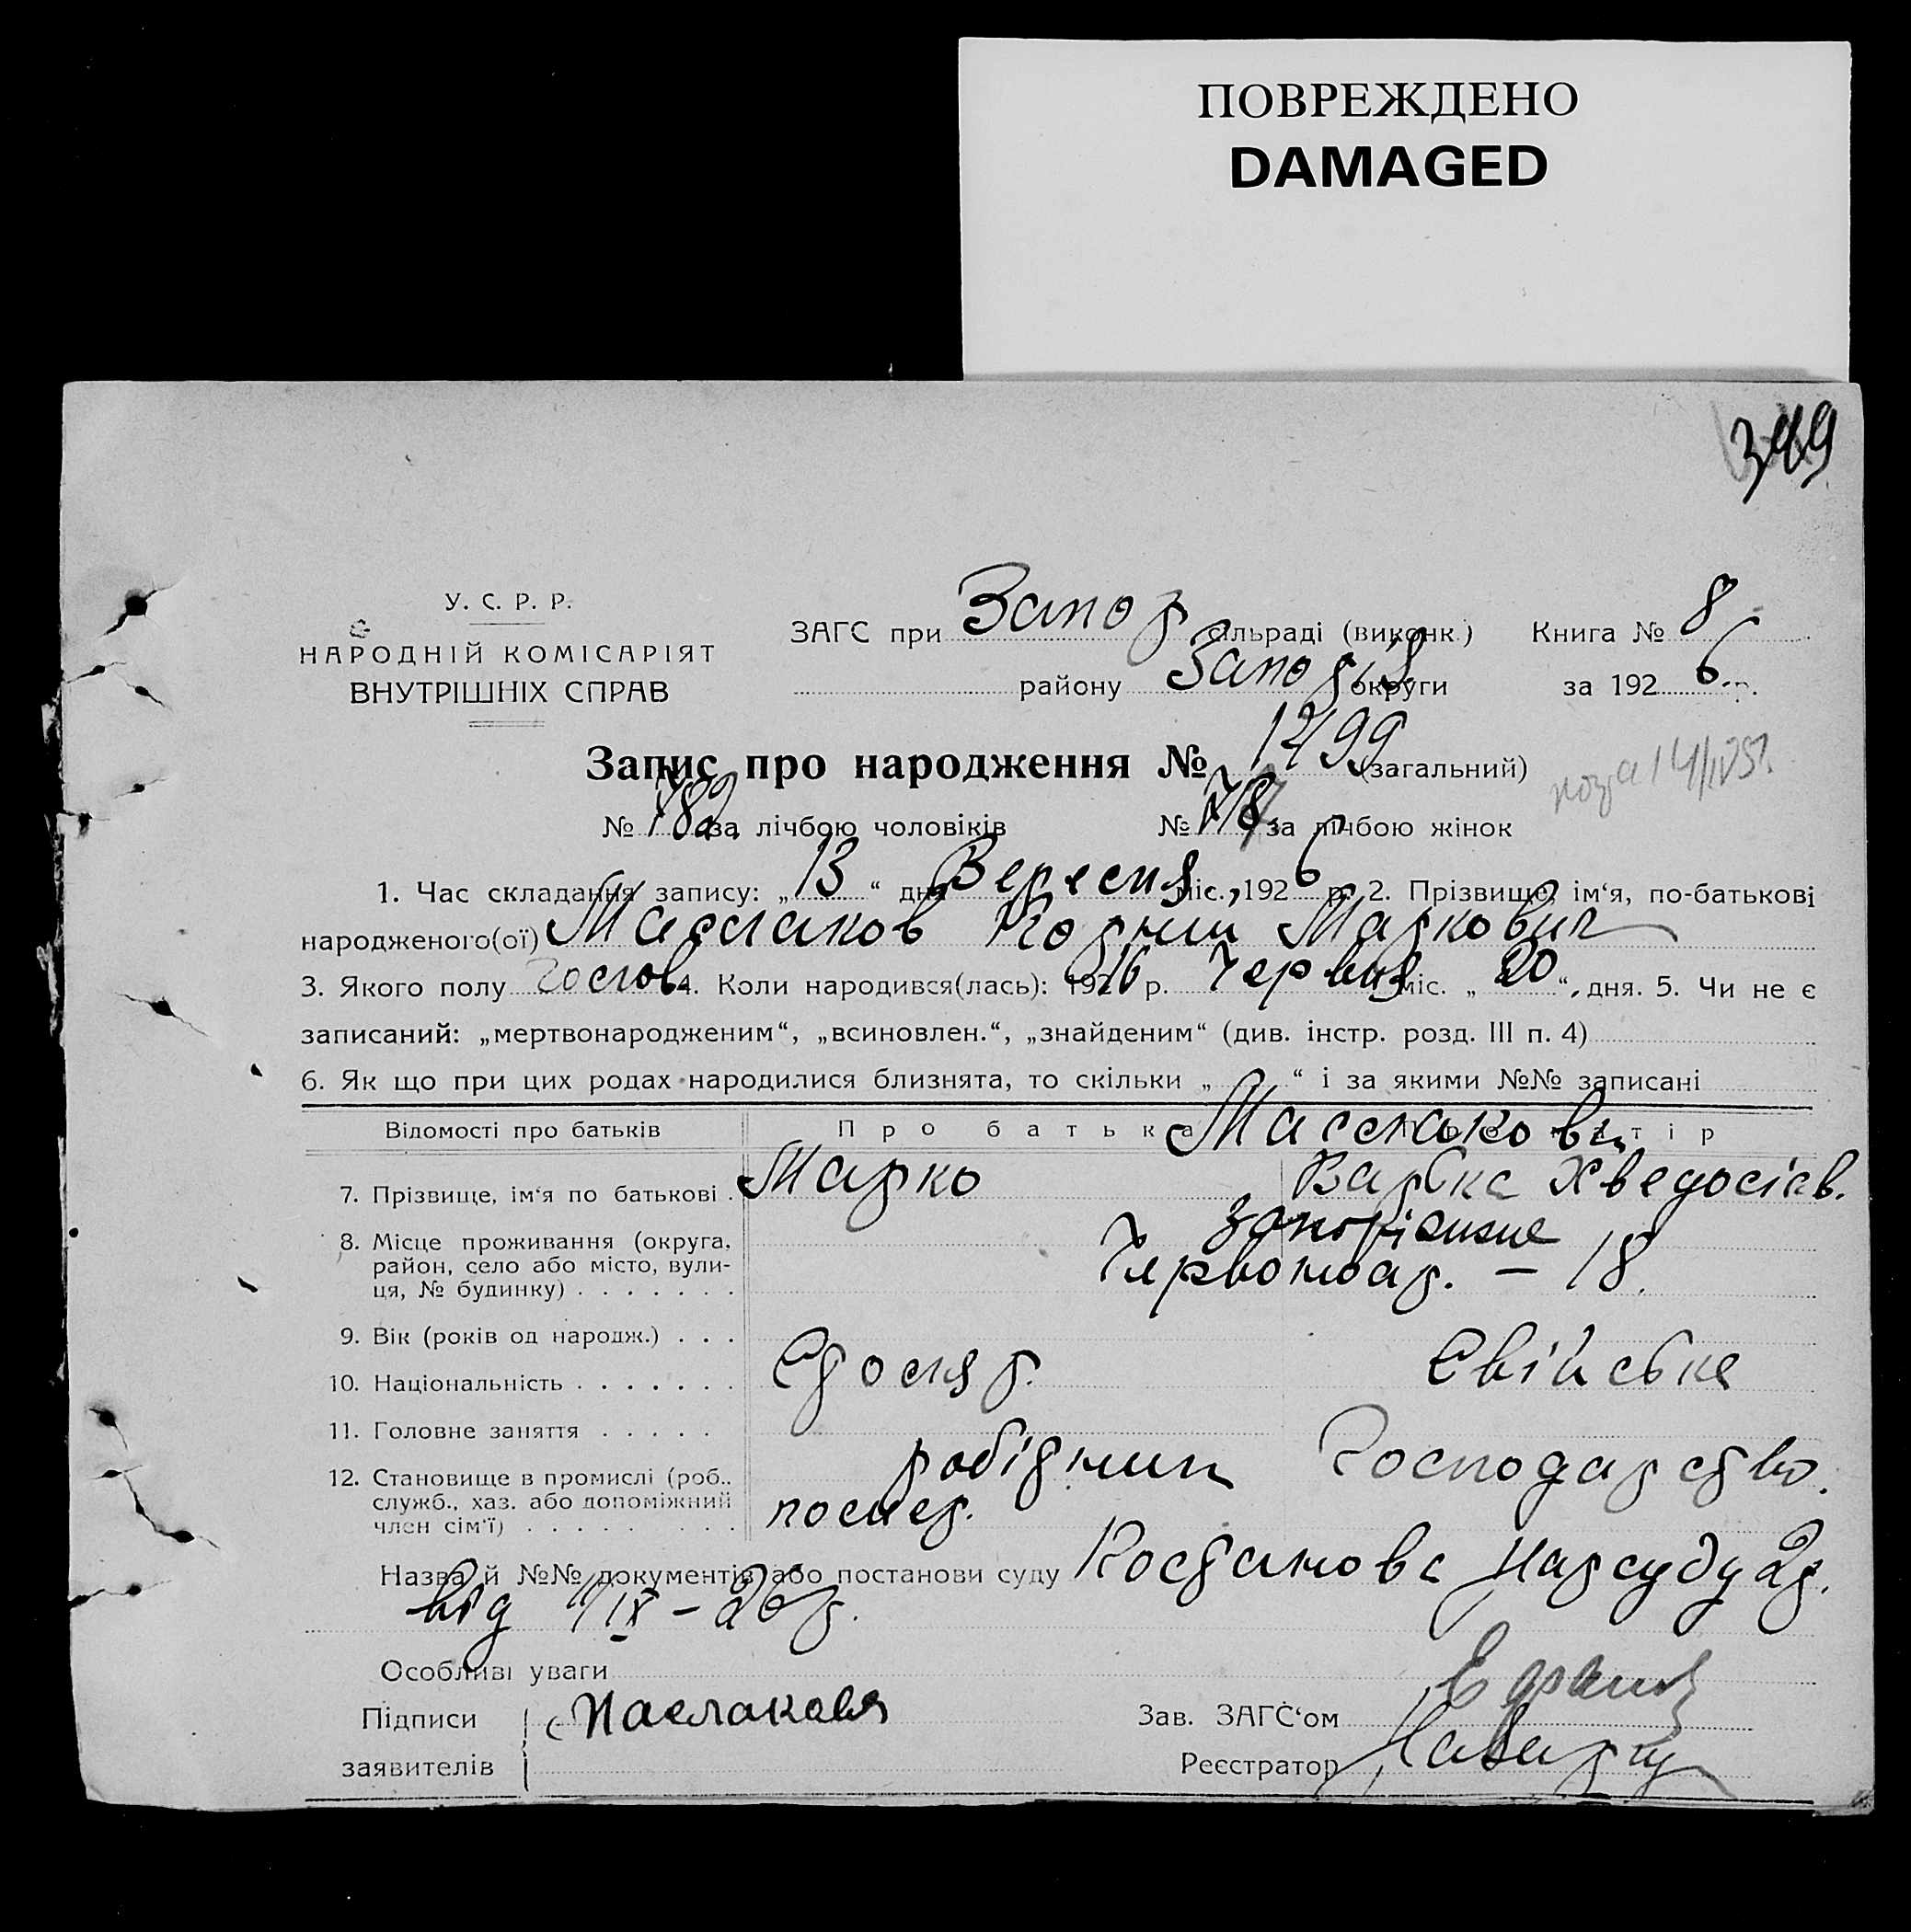 ПОВРЕЖДЕНО
DAMAGED
349
У. С. Р. Р.
НАРОДНІЙ КОМІСАРІЯТ
ВНУТРІШНІХ СПРАВ
ЗАГС при Запор сільраді (виконк.) Книга № 8
району Запоріз округи за 1926 р.
Запис про народження № 1499 (загальний)
№ 782 за лічбою чоловіків № за лічбою жінок
1. Час складання запису: „13“ дня Вересня міс., 1926 р. 2. Прізвище, ім‘я, по-батькові
народженого(ої) Маслаков Маркович
3. Якого полу 4. Коли народився(лась): 19 16 р. Червня міс. „20“, дня. 5. Чи не є
записаний: „мертвонародженим“, „всиновлен.“, „знайденим“ (див. інстр. розд. III п. 4)
6. Як що при цих родах народилися близнята, то скільки „ “ і за якими №№ записані
Відомості про батьків Про батька Про матір
Маслакови
7. Прізвище, ім‘я по батькові . Марко Варка Хведосієв.
8. Місце проживання (округа, район, село або місто, вулиця, № будинку) . . . . . . . Запоріжжя
Червоноар. – 18.
9. Вік (років од народж.) . . .
10. Національність . . . . . . . Євійська
11. Головне заняття . . . . . робітник Господарство.
12. Становище в промислі (роб., служб., хаз. або допоміжний член сім‘ї)
Назва й №№ документів або постанови суду Постанова Нарсуду 2р.
від 11/IX – 26 р.
Особливі уваги
Підписи Маслакова Зав. ЗАГС‘ом
заявителів Реєстратор